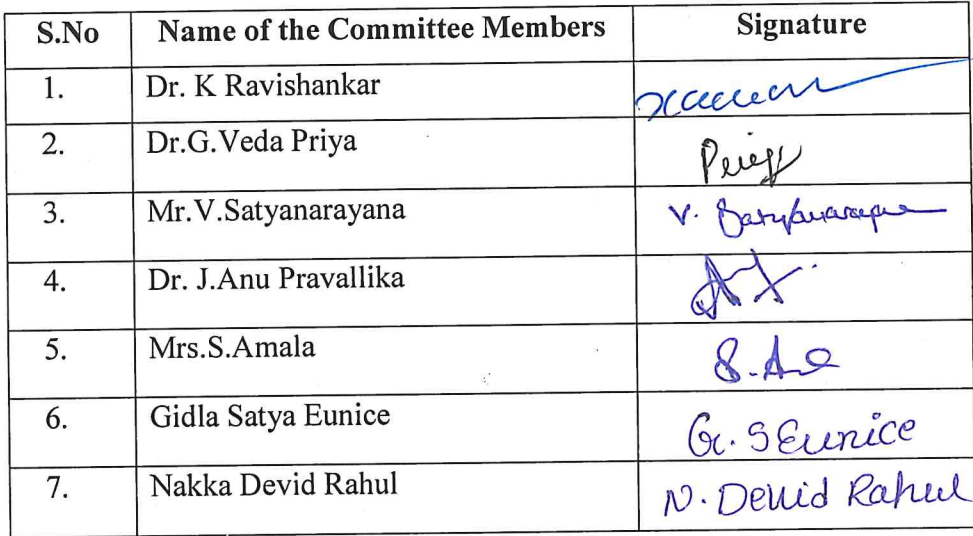 S.No Name of the Committee Members Signature
1. Dr. K Ravishankar
2. Dr.G.Veda Priya
3. Mr.V.Satyanarayana V. Satyanarayana
4. Dr. J.Anu Pravallika
5. Mrs.S.Amala
6. Gidla Satya Eunice G. S Eunice
7. Nakka Devid Rahul N. Devid Rahul